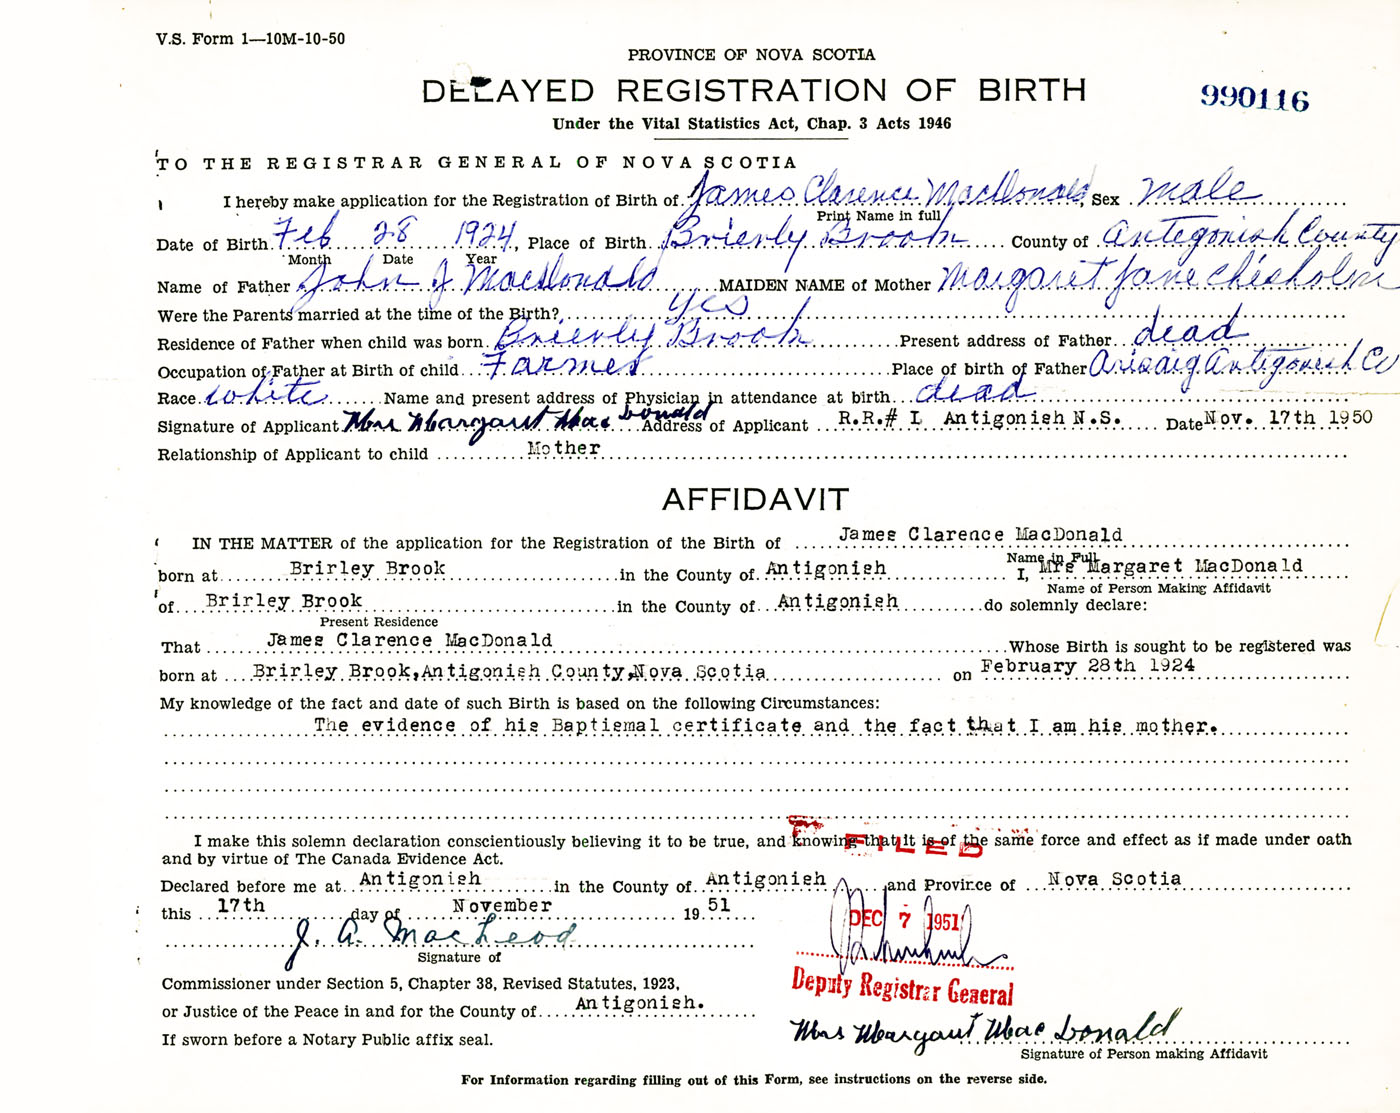 V.S. Form 1—10M-10-50
PROVINCE OF NOVA SCOTIA
DELAYED REGISTRATION OF BIRTH
990116
Under the Vital Statistics Act, Chap. 3 Acts 1946
TO THE REGISTRAR GENERAL OF NOVA SCOTIA
I hereby make application for the Registration of Birth of James Clarence MacDonald, Sex male
Print Name in full
Date of Birth Feb 28 1924, Place of Birth Brierly Brook County of Antegonish County
Month Date Year
Name of Father John J MacDonald MAIDEN NAME of Mother Margaret Jane Chisholm
Were the Parents married at the time of the Birth? yes
Residence of Father when child was born Brierly Brook Present address of Father dead
Occupation of Father at Birth of child Farmer Place of birth of Father Arisaig Antigonish Co
Race white Name and present address of Physician in attendance at birth dead
Signature of Applicant Mrs Margaret MacDonald Address of Applicant R.R.# 1 Antigonish N.S. Date Nov. 17th 1950
Relationship of Applicant to child Mother
AFFIDAVIT
IN THE MATTER of the application for the Registration of the Birth of James Clarence MacDonald
Name in Full
born at Brirley Brook in the County of Antigonish I, Mrs Margaret MacDonald
Name of Person Making Affidavit
of Brirley Brook in the County of Antigonish do solemnly declare:
Present Residence
That James Clarence MacDonald Whose Birth is sought to be registered was
born at Brirley Brook, Antigonish County, Nova Scotia on February 28th 1924
My knowledge of the fact and date of such Birth is based on the following Circumstances:
The evidence of his Baptismal certificate and the fact that I am his mother.
I make this solemn declaration conscientiously believing it to be true, and knowing that it is of the same force and effect as if made under oath
and by virtue of The Canada Evidence Act.
FILED
Declared before me at Antigonish in the County of Antigonish and Province of Nova Scotia
this 17th day of November 1951
DEC 7 1951
J. A. MacLeod
Signature of
Deputy Registrar General
Commissioner under Section 5, Chapter 38, Revised Statutes, 1923,
or Justice of the Peace in and for the County of Antigonish.
Mrs Margaret MacDonald
If sworn before a Notary Public affix seal.
Signature of Person making Affidavit
For Information regarding filling out of this Form, see instructions on the reverse side.